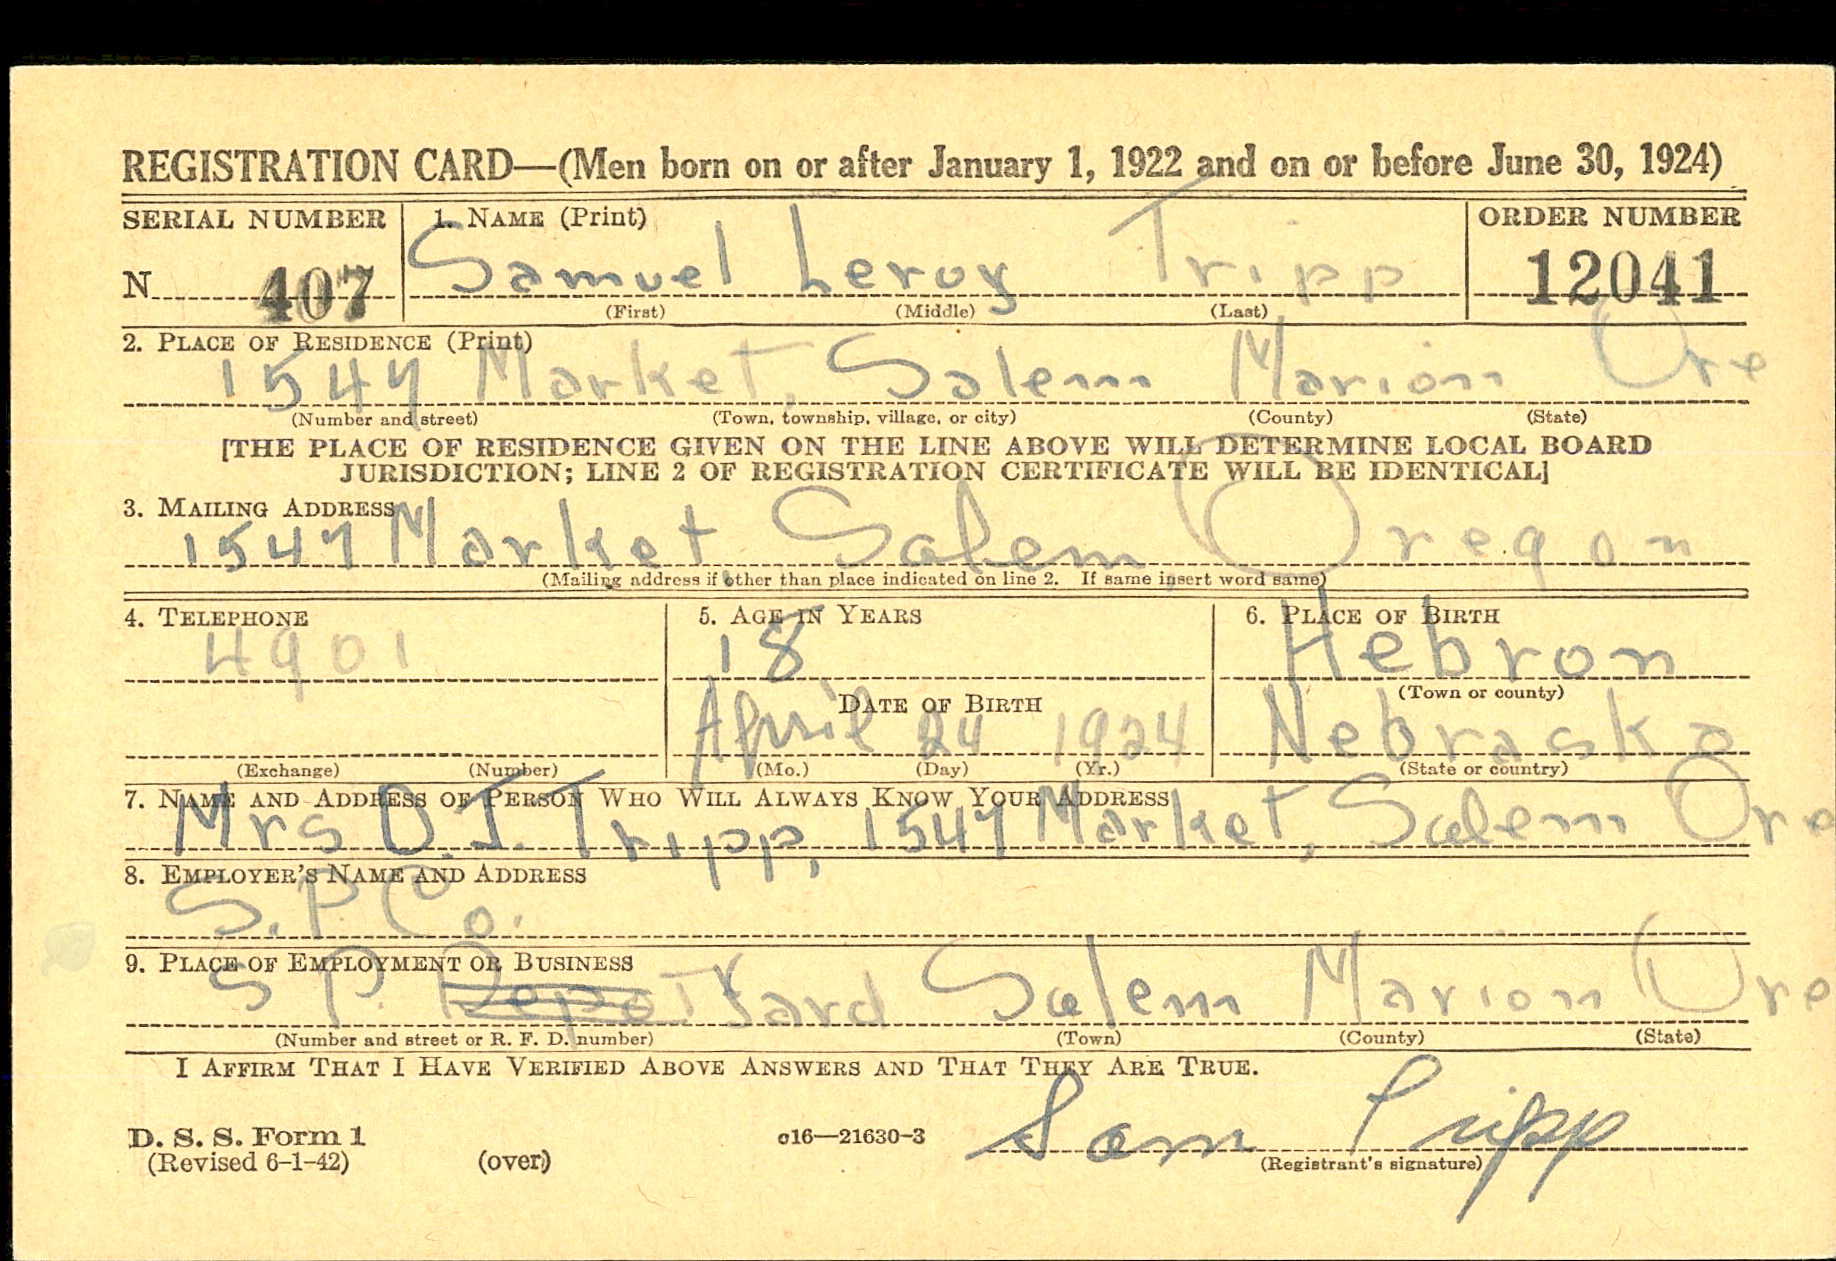 REGISTRATION CARD—(Men born on or after January 1, 1922 and on or before June 30, 1924)
SERIAL NUMBER 1. NAME (Print) ORDER NUMBER
N 407 Samuel Leroy Tripp 12041
(First) (Middle) (Last)
2. PLACE OF RESIDENCE (Print)
1547 Market, Salem Marion Ore
(Number and street) (Town, township, village, or city) (County) (State)
[THE PLACE OF RESIDENCE GIVEN ON THE LINE ABOVE WILL DETERMINE LOCAL BOARD
JURISDICTION; LINE 2 OF REGISTRATION CERTIFICATE WILL BE IDENTICAL]
3. MAILING ADDRESS
1547 Market, Salem, Oregon
(Mailing address if other than place indicated on line 2. If same insert word same)
4. TELEPHONE 5. AGE IN YEARS 6. PLACE OF BIRTH
4901 18 Hebron
(Town or county)
DATE OF BIRTH
April 24 1924 Nebraska
(Exchange) (Number) (Mo.) (Day) (Yr.) (State or country)
7. NAME AND ADDRESS OF PERSON WHO WILL ALWAYS KNOW YOUR ADDRESS
Mrs O.J. Tripp, 1547 Market, Salem Ore
8. EMPLOYER'S NAME AND ADDRESS
S.P Co.
9. PLACE OF EMPLOYMENT OR BUSINESS
S P. Depot Yard Salem Marion Ore
(Number and street or R. F. D. number) (Town) (County) (State)
I AFFIRM THAT I HAVE VERIFIED ABOVE ANSWERS AND THAT THEY ARE TRUE.
D. S. S. Form 1 c16—21630-3 Sam Tripp
(Revised 6-1-42) (over) (Registrant's signature)